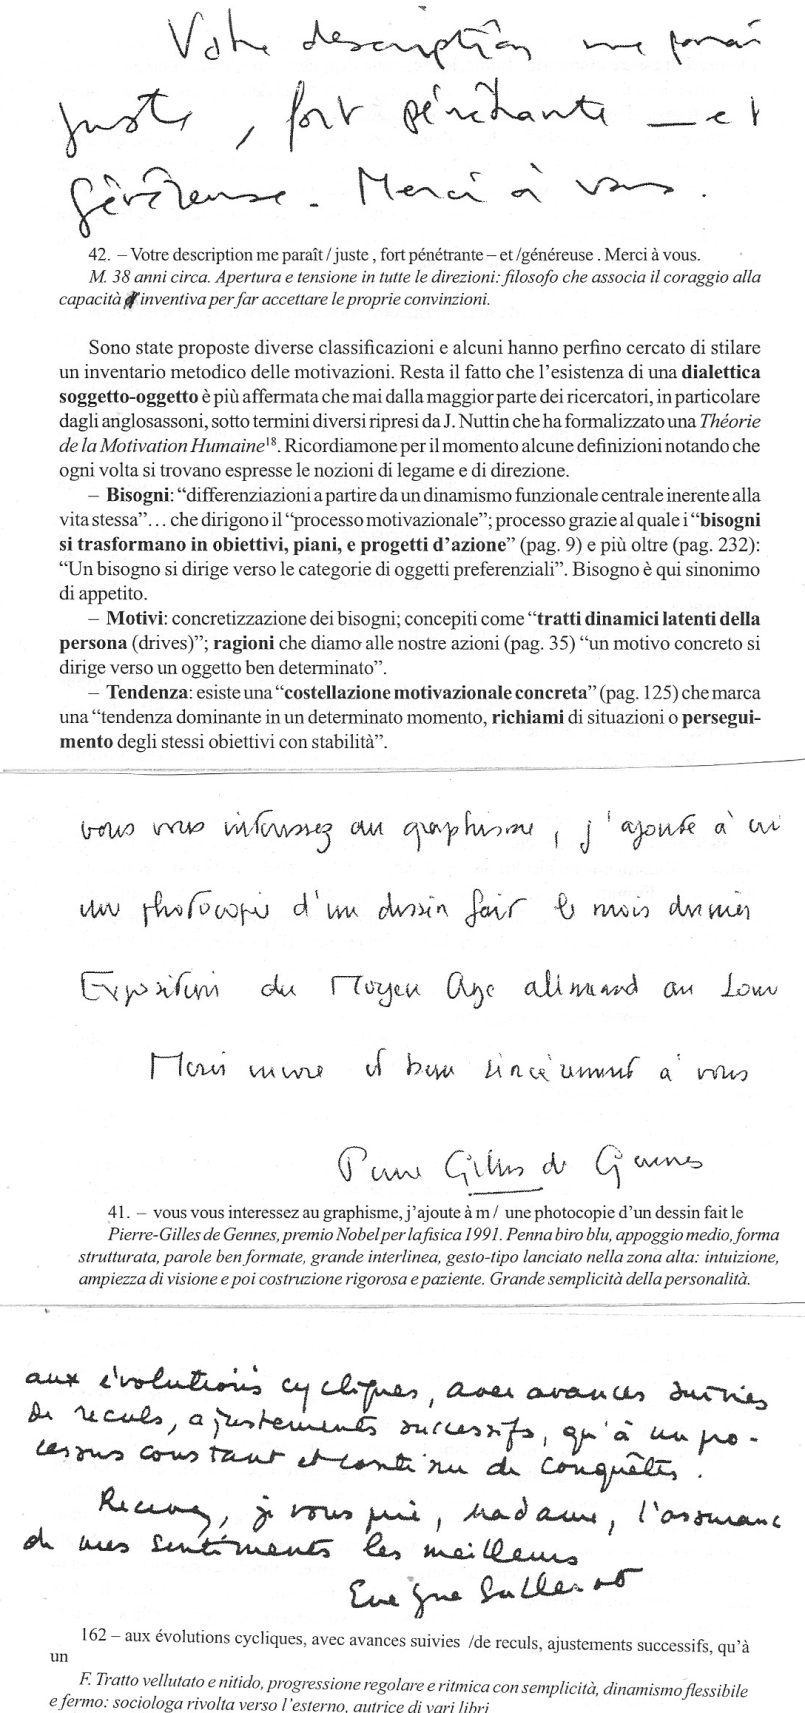 Votre description me parai
juste, fort pénétrante – et
généreuse. Merci à vous.
42. – Votre description me paraît / juste , fort pénétrante – et /généreuse . Merci à vous.
M. 38 anni circa. Apertura e tensione in tutte le direzioni: filosofo che associa il coraggio alla
capacità inventiva per far accettare le proprie convinzioni.
Sono state proposte diverse classificazioni e alcuni hanno perfino cercato di stilare
un inventario metodico delle motivazioni. Resta il fatto che l’esistenza di una dialettica
soggetto-oggetto è più affermata che mai dalla maggior parte dei ricercatori, in particolare
dagli anglosassoni, sotto termini diversi ripresi da J. Nuttin che ha formalizzato una Théorie
de la Motivation Humaine¹⁸. Ricordiamone per il momento alcune definizioni notando che
ogni volta si trovano espresse le nozioni di legame e di direzione.
– Bisogni: “differenziazioni a partire da un dinamismo funzionale centrale inerente alla
vita stessa”… che dirigono il “processo motivazionale”; processo grazie al quale i “bisogni
si trasformano in obiettivi, piani, e progetti d’azione” (pag. 9) e più oltre (pag. 232):
“Un bisogno si dirige verso le categorie di oggetti preferenziali”. Bisogno è qui sinonimo
di appetito.
– Motivi: concretizzazione dei bisogni; concepiti come “tratti dinamici latenti della
persona (drives)”; ragioni che diamo alle nostre azioni (pag. 35) “un motivo concreto si
dirige verso un oggetto ben determinato”.
– Tendenza: esiste una “costellazione motivazionale concreta” (pag. 125) che marca
una “tendenza dominante in un determinato momento, richiami di situazioni o persegui-
mento degli stessi obiettivi con stabilità”.
vous vous interessez au graphisme, j'ajoute à
une photocopie d'un dessin fait le mois dernier
Exposition du Moyen Age allemand au Louv
Merci encore et bien sincèrement à vous
Pierre Gilles de Gennes
41. – vous vous interessez au graphisme, j’ajoute à m / une photocopie d’un dessin fait le
Pierre-Gilles de Gennes, premio Nobel per la fisica 1991. Penna biro blu, appoggio medio, forma
strutturata, parole ben formate, grande interlinea, gesto-tipo lanciato nella zona alta: intuizione,
ampiezza di visione e poi costruzione rigorosa e paziente. Grande semplicità della personalità.
aux évolutions cycliques, avec avances suivies
de reculs, ajustements successifs, qu'à un pro-
cessus constant et continu de conquêtes.
Recevez, je vous prie, Madame, l'assuranc
de mes sentiments les meilleurs
Evelyne Sullerot
162 – aux évolutions cycliques, avec avances suivies /de reculs, ajustements successifs, qu’à
un
F. Tratto vellutato e nitido, progressione regolare e ritmica con semplicità, dinamismo flessibile
e fermo: sociologa rivolta verso l’esterno, autrice di vari libri